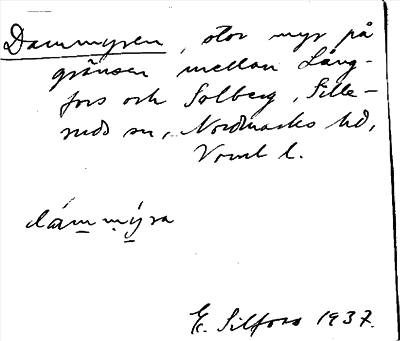 Dammyren, stor myr på
gränsen mellan Lång-
fors och Solberg, Sille-
ruds sn, Nordmarks hd,
Vrml l.
dám̲m̲ý̲ra
E. Silfors 1937.